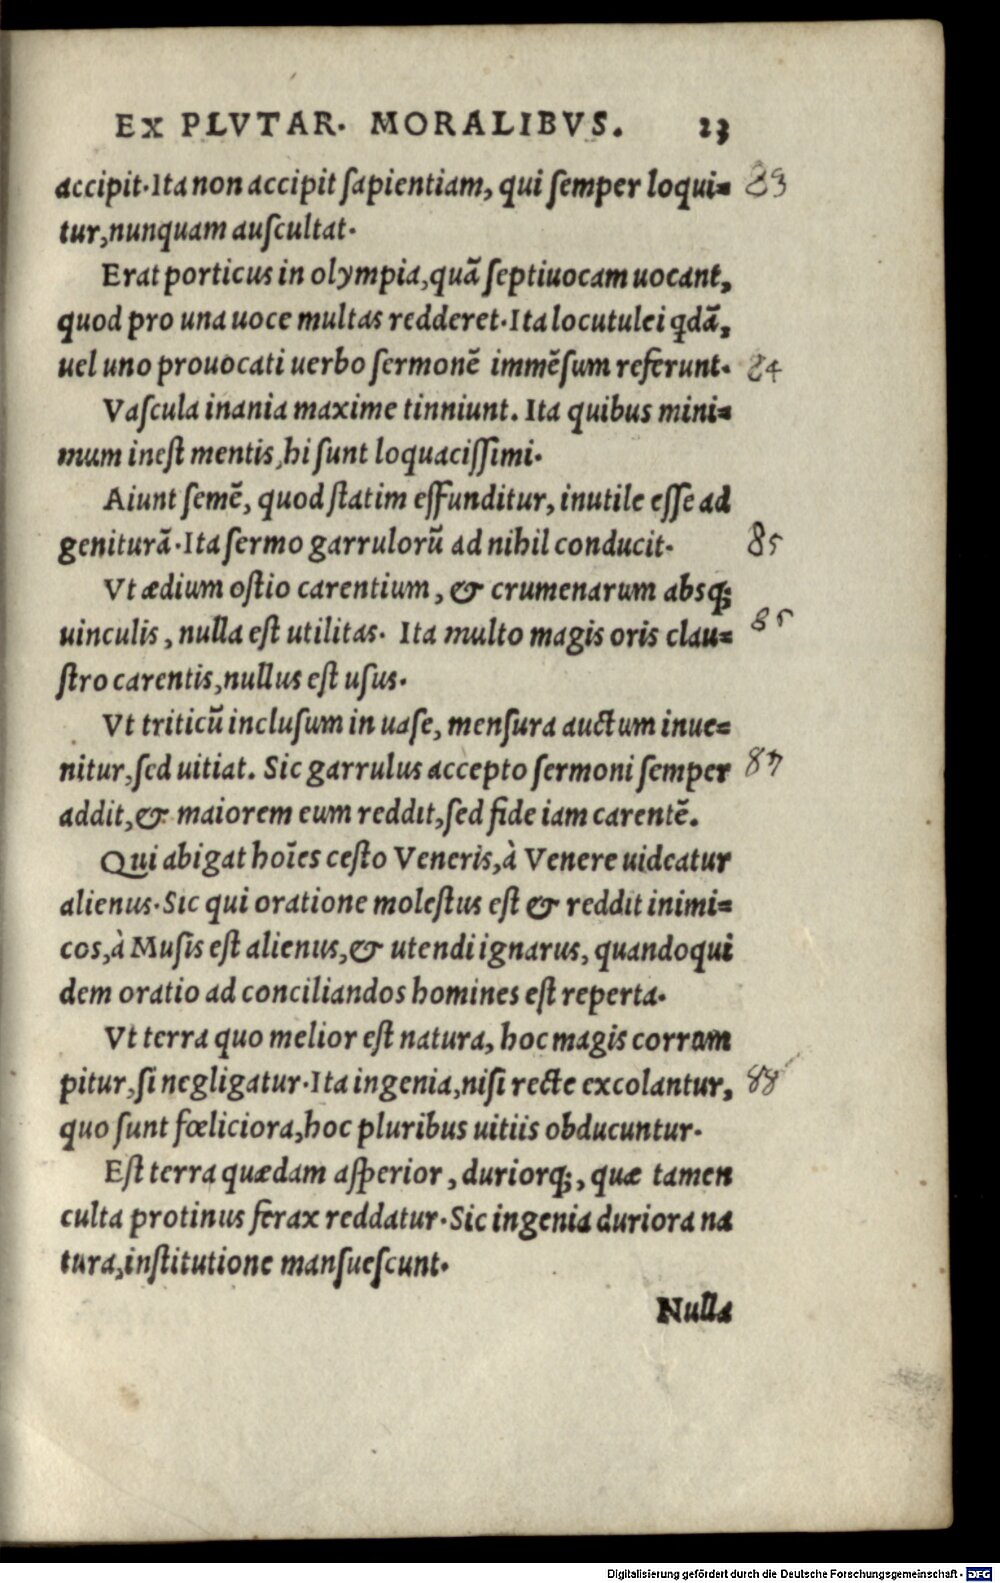 EX PLVTAR. MORALIBVS. 23
accipit. Ita non accipit ſapientiam, qui ſemper loqui= 83
tur, nunquam auſcultat.
Erat porticus in olympia, quã ſeptiuocam uocant,
quod pro una uoce multas redderet. Ita locutulei qdã,
uel uno prouocati uerbo ſermonẽ immẽſum referunt. 84
Vaſcula inania maxime tinniunt. Ita quibus mini=
mum ineſt mentis, hi ſunt loquaciſſimi.
Aiunt ſemẽ, quod ſtatim effunditur, inutile eſſe ad
geniturã. Ita ſermo garrulorũ ad nihil conducit. 85
Vt ædium oſtio carentium, & crumenarum absq;
uinculis, nulla eſt utilitas. Ita multo magis oris clau= 85
ſtro carentis, nullus eſt uſus.
Vt triticũ incluſum in uaſe, menſura auctum inue=
nitur, ſed uitiat. Sic garrulus accepto ſermoni ſemper 87
addit, & maiorem eum reddit, ſed fide iam carentẽ.
Qui abigat hoĩes ceſto Veneris, à Venere uideatur
alienus. Sic qui oratione moleſtus eſt & reddit inimi=
cos, à Muſis eſt alienus, & utendi ignarus, quandoqui
dem oratio ad conciliandos homines eſt reperta.
Vt terra quo melior eſt natura, hoc magis corrum
pitur, ſi negligatur. Ita ingenia, niſi recte excolantur, 88
quo ſunt fœliciora, hoc pluribus uitiis obducuntur.
Eſt terra quædam aſperior, duriorq;, quæ tamen
culta protinus ferax reddatur. Sic ingenia duriora na
tura, inſtitutione manſueſcunt.
Nulla
Digitalisierung gefördert durch die Deutsche Forschungsgemeinschaft - DFG